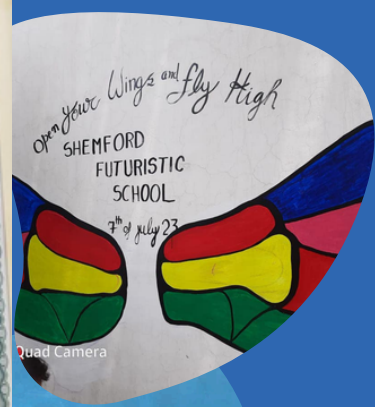 Open your Wings and fly High
SHEMFORD
FUTURISTIC
SCHOOL
7th of july 23
Quad Camera